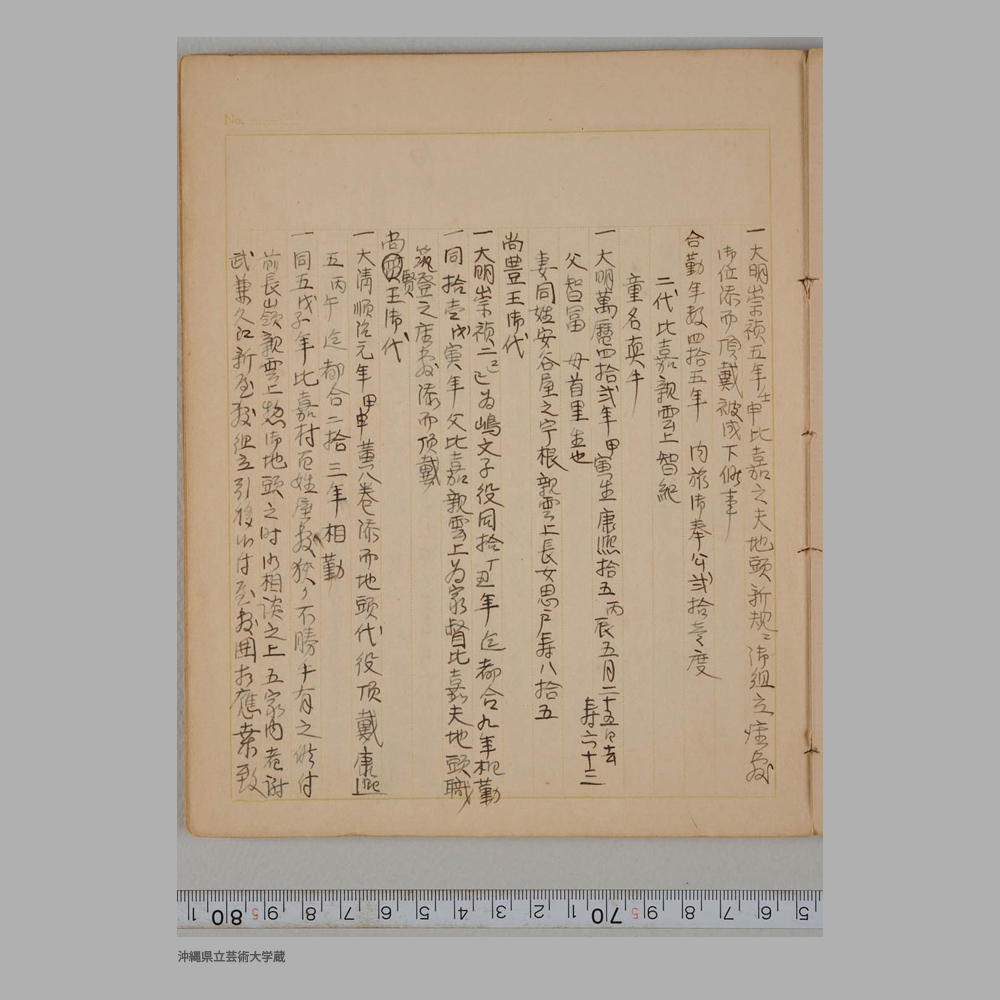 一大明崇禎五年壬申比嘉之夫地頭新規ニ御組立座敷
御位添而頂戴被成下候事
合勤年数四拾五年 内旅御奉公弐拾壱度
二代比嘉親雲上智紀
童名真牛
一大明萬暦四拾弐年甲寅生康熙拾五丙辰五月二十五日去
寿六十三
父智冨 母首里生也
妻同姓安谷屋之宇根親雲上長女思戸寿八拾五
尚豊王御代
一大明崇禎二己巳為嶋文子役同拾丁丑年迄都合九年相勤
一同拾壱戊寅年父比嘉親雲上為家督比嘉夫地頭職
筑登之座敷添而頂戴
尚賢王御代
一大清順治元年甲申黄八巻添而地頭代役頂戴康熙
五丙午迄都合二拾三年相勤
一同五戊子年比嘉村百姓屋敷狭ク不勝手有之候付
前長嶺親雲上惣御地頭之時御相談之上五家内者謝
武兼久江新屋敷組立引移候付屋敷囲相應葉致
No.
沖縄県立芸術大学蔵
5 6 7 8 9 70 1 2 3 4 5 6 7 8 9 80 1